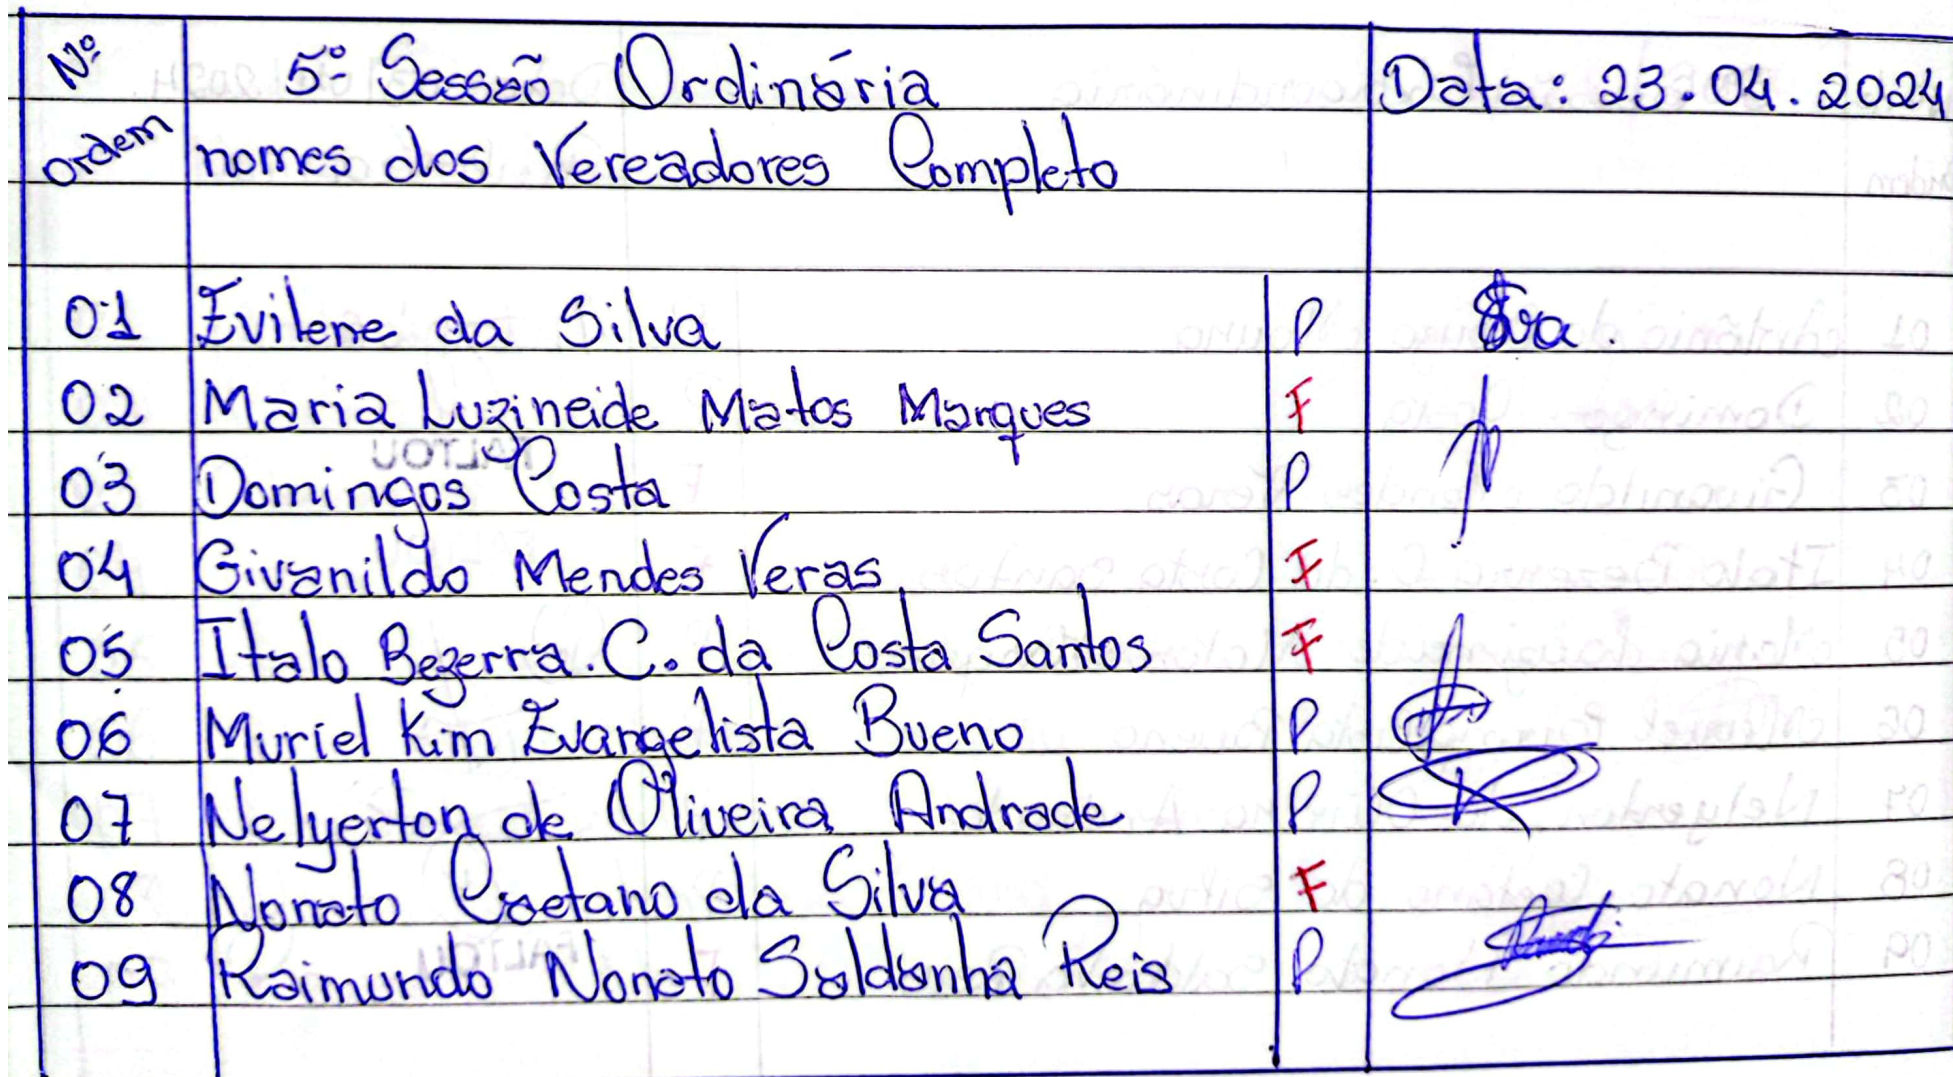 Nº 5ª Sessão Ordinária Data: 23.04.2024
ordem nomes dos Vereadores Completo
01 Evilene da Silva P
02 Maria Luzineide Matos Marques F
03 Domingos Costa P
04 Givanildo Mendes Veras F
05 Italo Bezerra. C. da Costa Santos F
06 Muriel Kim Evangelista Bueno P
07 Nelyerton de Oliveira Andrade P
08 Nonato Caetano da Silva F
09 Raimundo Nonato Saldanha Reis P